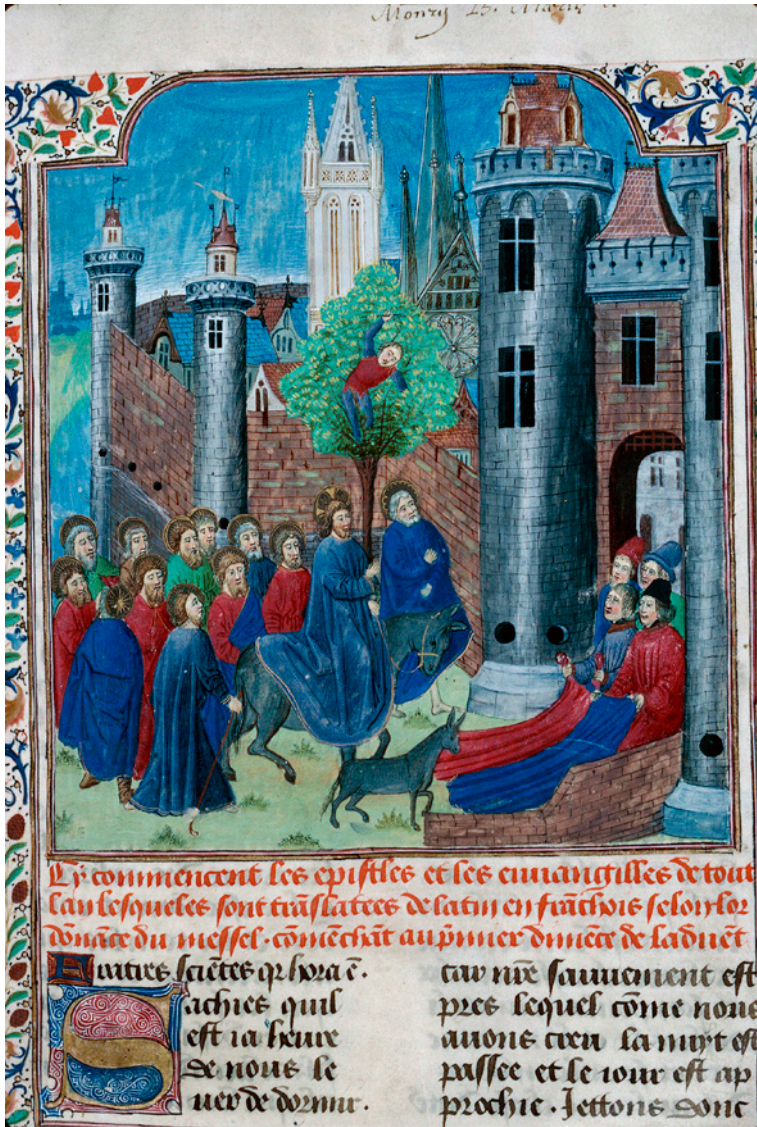 Cy commencent les epistles et les euuangilles de tout
lan lesqueles sont trãslatees de latin en frãchois selon lor
dõnãce du messel · cõmẽchãt au pꝛmier dimẽce de laduẽt
Fratres scientes qꝛ hora ē.
Sachies quil
est ia heure
de nous le
uer de dormir.
car nr̃e sauuement est
pres lequel cõme nous
auons creu la nuyt est
passee et le iour est ap
prochie · Jettons donc